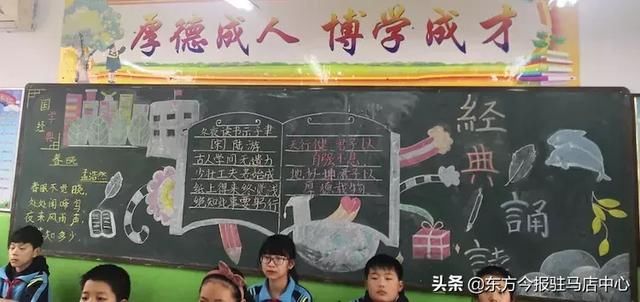 厚德成人 博学成才
国学经典
春晓
孟浩然
春眠不觉晓，
处处闻啼鸟
夜来风雨声，
知多少.
冬夜读书示子聿
[宋]陆游
古人学问无遗力
少壮工夫老始成
纸上得来终觉浅
绝知此事要躬行
天行健 君子以
自强不息
地势坤 君子以
厚德载物
經典誦讀
头条 @东方今报驻马店中心